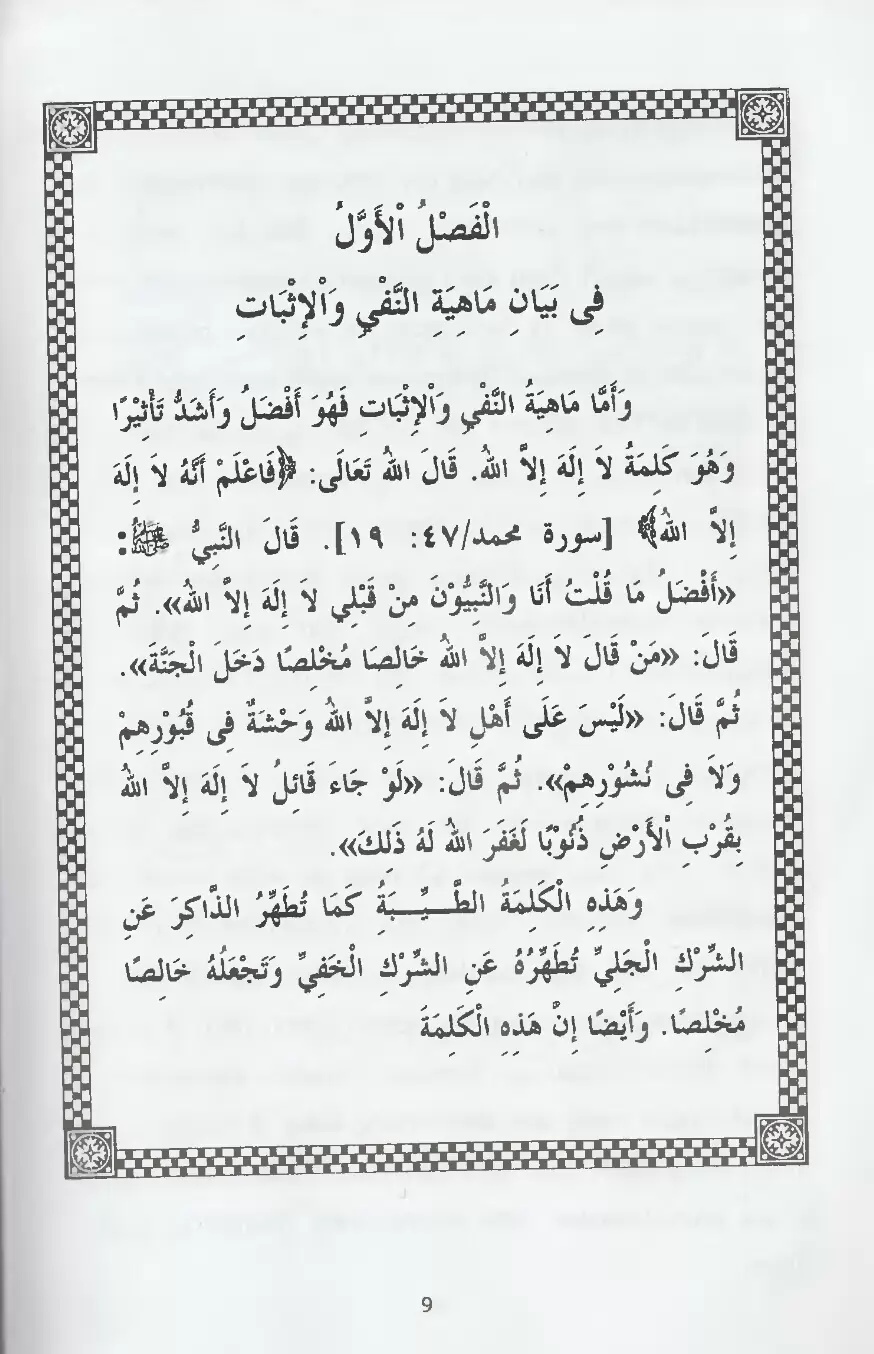 الْفَصْلُ الْأَوَّلُ
فِى بَيَانِ مَاهِيَةِ النَّفْيِ وَالْإِثْبَاتِ
وَأَمَّا مَاهِيَةُ النَّفْيِ وَالْإِثْبَاتِ فَهُوَ أَفْضَلُ وَأَشَدُّ تَأْثِيْرًا
وَهُوَ كَلِمَةُ لاَ إِلَهَ إِلاَّ اللهُ. قَالَ اللهُ تَعَالَى: ﴿فَاعْلَمْ أَنَّهُ لاَ إِلَهَ
إِلاَّ اللهُ﴾ [سورة محمد/٤٧: ١٩]. قَالَ النَّبِيُّ ﷺ:
«أَفْضَلُ مَا قُلْتُ أَنَا وَالنَّبِيُّوْنَ مِنْ قَبْلِي لاَ إِلَهَ إِلاَّ اللهُ». ثُمَّ
قَالَ: «مَنْ قَالَ لاَ إِلَهَ إِلاَّ اللهُ خَالِصًا مُخْلِصًا دَخَلَ الْجَنَّةَ».
ثُمَّ قَالَ: «لَيْسَ عَلَى أَهْلِ لاَ إِلَهَ إِلاَّ اللهُ وَحْشَةٌ فِى قُبُوْرِهِمْ
وَلاَ فِى نُشُوْرِهِمْ». ثُمَّ قَالَ: «لَوْ جَاءَ قَائِلُ لاَ إِلَهَ إِلاَّ اللهُ
بِقُرْبِ الْأَرْضِ ذُنُوْبًا لَغَفَرَ اللهُ لَهُ ذَلِكَ».
وَهَذِهِ الْكَلِمَةُ الطَّيِّبَةُ كَمَا تُطَهِّرُ الذَّاكِرَ عَنِ
الشِّرْكِ الْجَلِيِّ تُطَهِّرُهُ عَنِ الشِّرْكِ الْخَفِيِّ وَتَجْعَلُهُ خَالِصًا
مُخْلِصًا. وَأَيْضًا إِنَّ هَذِهِ الْكَلِمَةَ
9